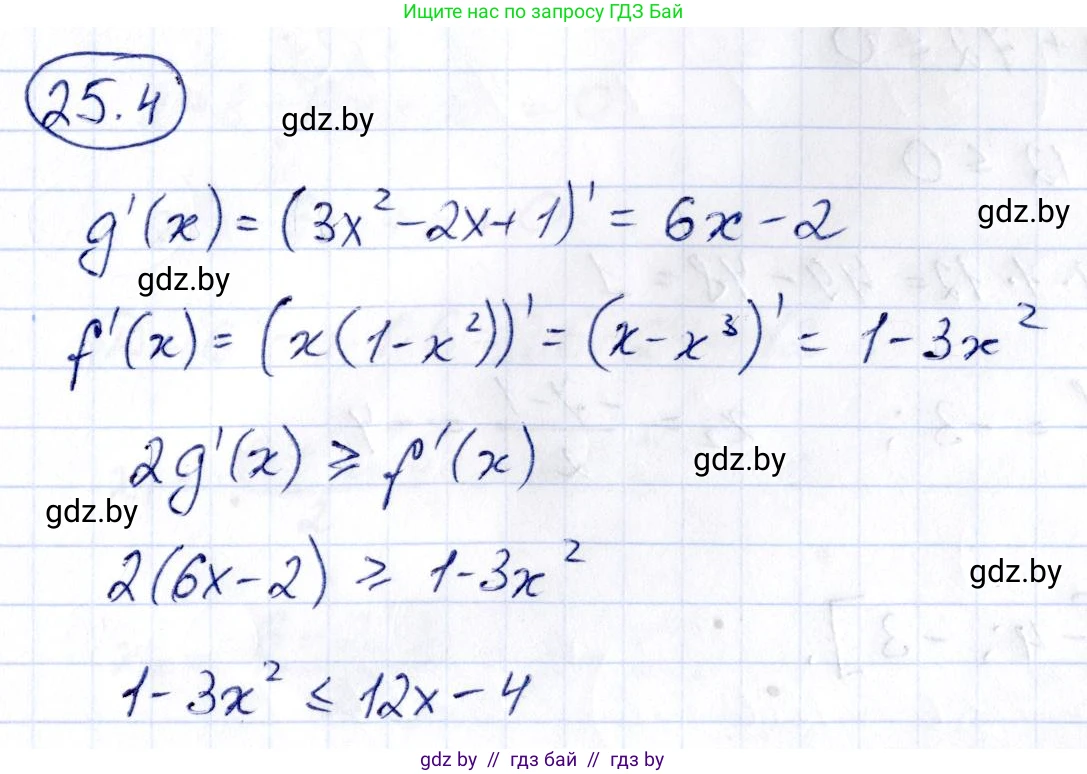 Ищите нас по запросу ГДЗ Бай
25.4
gdz.by
g'(x) = (3x² - 2x + 1)' = 6x - 2
gdz.by
gdz.by
f'(x) = (x(1 - x²))' = (x - x³)' = 1 - 3x²
2g'(x) ≥ f'(x)
gdz.by
gdz.by
2(6x - 2) ≥ 1 - 3x²
gdz.by
1 - 3x² ≤ 12x - 4
gdz.by // гдз бай // гдз by